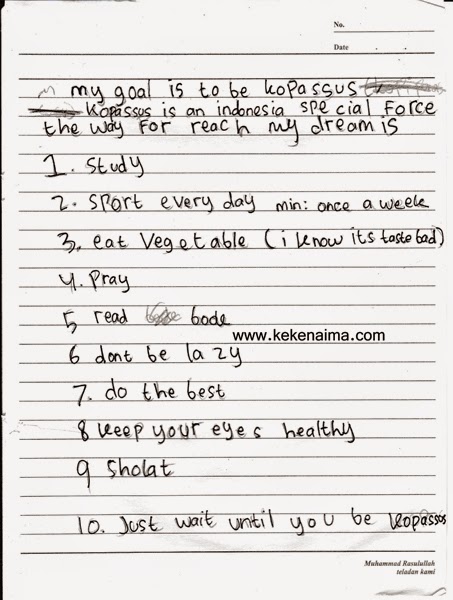 No.
Date
my goal is to be kopassus
kopassus is an indonesia special force
the way for reach my dream is
1. Study
2. Sport every day min: once a week
3. eat vegetable (i know its taste bad)
4. Pray
5 read bode
www.kekenaima.com
6 dont be lazy
7. do the best
8 keep your eyes healthy
9 Sholat
10. Just wait until you be kopassos
Muhammad Rasulullah
teladan kami